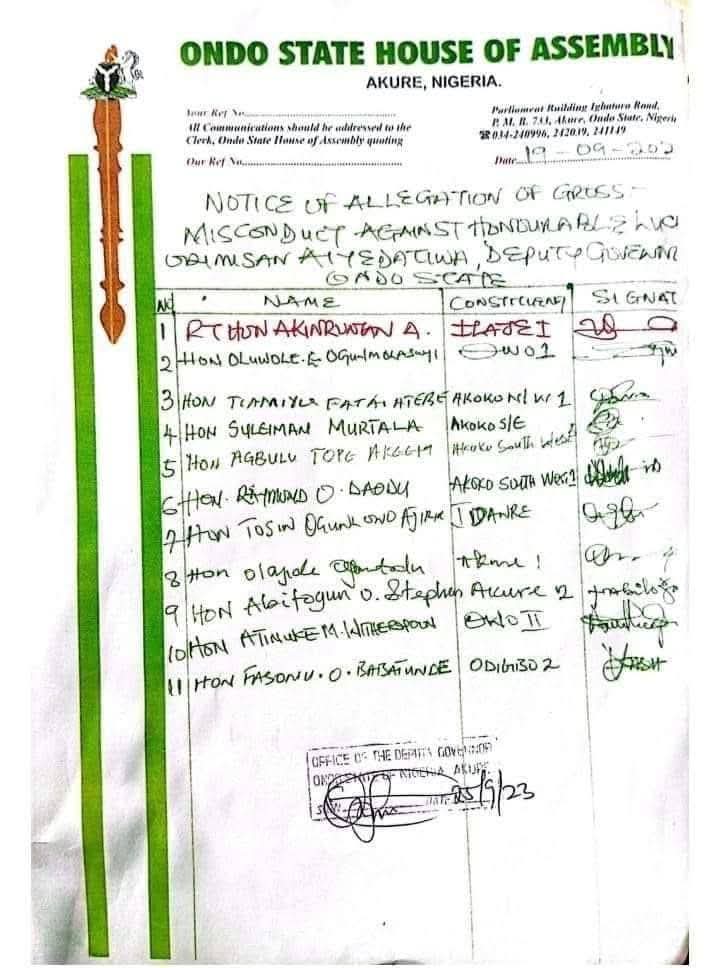 ONDO STATE HOUSE OF ASSEMBLY
AKURE, NIGERIA.
Your Ref No
All Communications should be addressed to the
Clerk, Ondo State House of Assembly quoting
Our Ref No
Parliament Building Igbatoro Road,
P. M. B. 733, Akure, Ondo State, Nigeria
☎034-240996, 242039, 241149
Date 19-09-202
NOTICE OF ALLEGATION OF GROSS-
MISCONDUCT AGAINST HONOURABLE LUC
ORIMISAN AIYEDATIWA, DEPUTY GOVERN
ONDO STATE
NO NAME CONSTITUENCY SIGNAT
1 RT HON AKINRUTAN A. ILAJE I
2 HON OLUWOLE. E OGUNMOLASUYI OWO 1
3 HON TIAMIYU FATAI ATERE AKOKO N/W 1
4 HON SULEIMAN MURTALA AKOKO S/E
5 HON AGBULU TOPE AKOKO South West
6 HON. RAYMUND O. DAODU AKOKO SOUTH WEST 1
7 HON TOSIN OGUNLOWO AJIRK IDANRE
8 Hon Olajide Akure 1
9 HON Abitogun O. Stephen Akure 2
10 HON ATINUKE M. WITHERSPOON OWO II
11 HON FASONU. O. BABATUNDE ODIGIBO 2
OFFICE OF THE DEPUTY GOVERNOR
ONDO STATE OF NIGERIA, AKURE
DATE 25/9/23